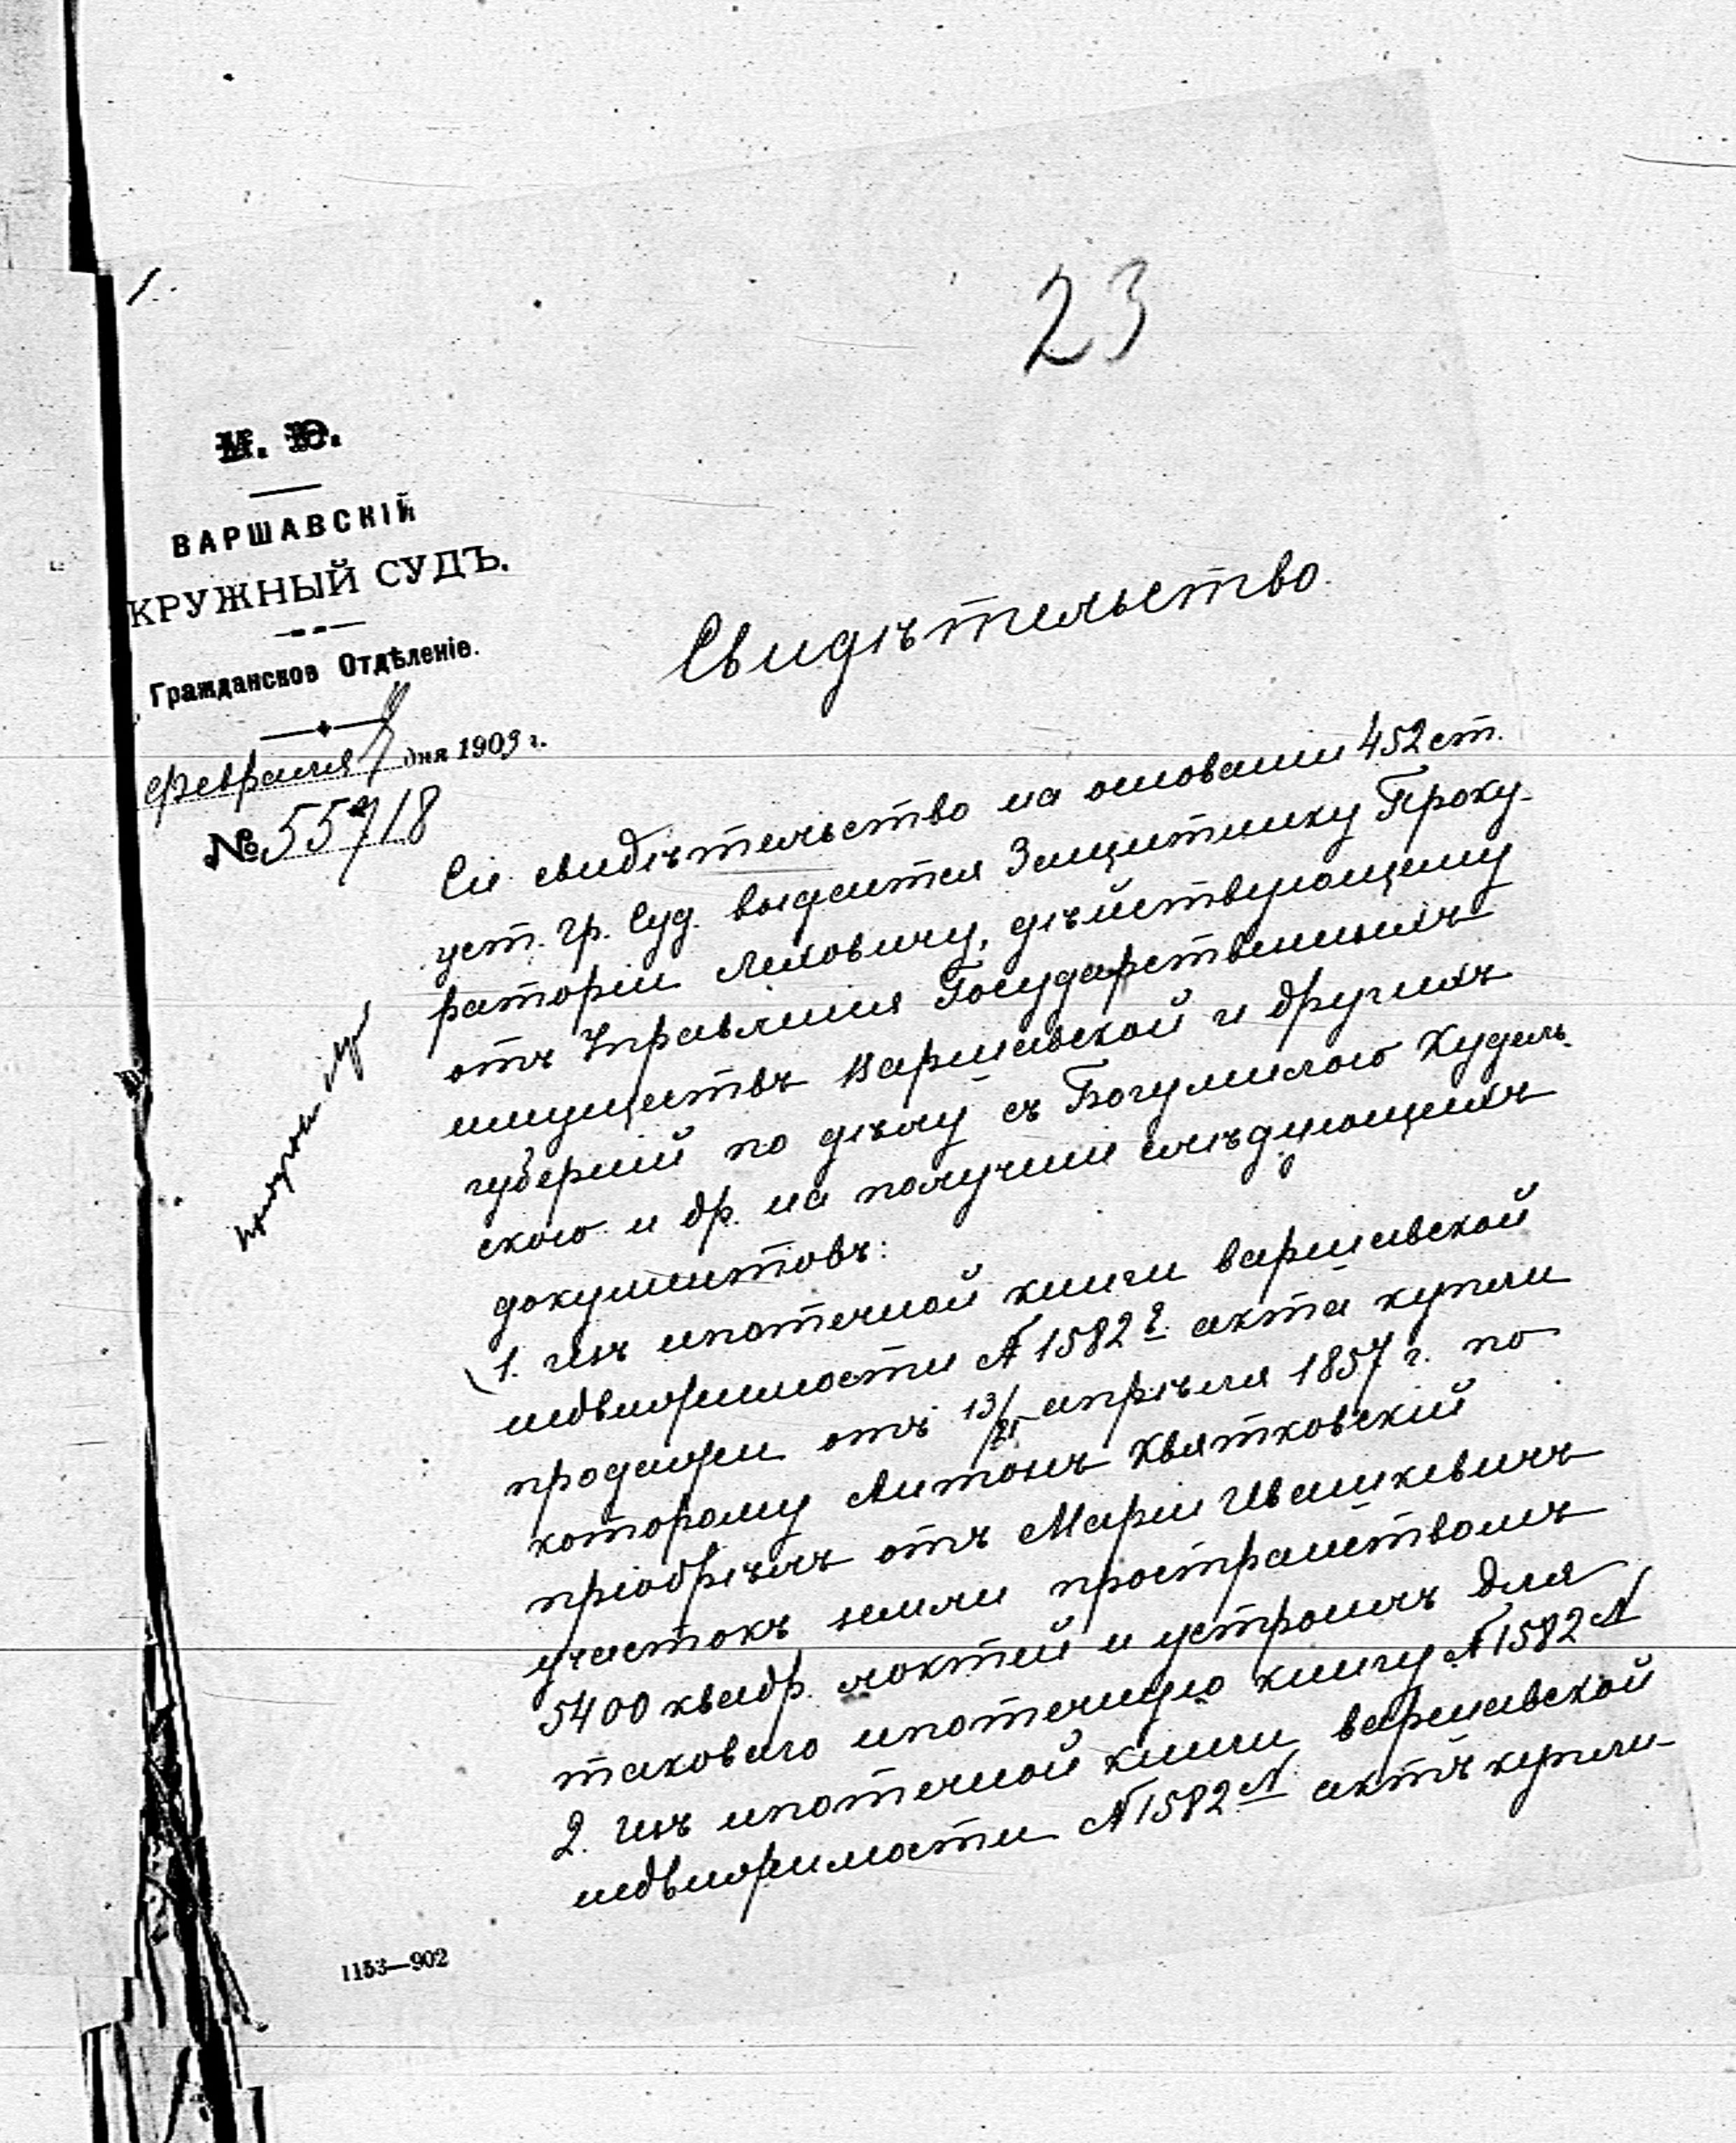 23
М. Ю.
ВАРШАВСКІЙ
КРУЖНЫЙ СУДЪ.
Гражданское Отдѣленіе.
Февраля дня 1903 г.
№ 55718
Свидѣтельство
Сіе свидѣтельство на основаніи 452 ст.
уст. гр. суд. выдается Защитнику Проку-
раторіи Леховичу, дѣйствующему
отъ Управленія Государственныхъ
имуществъ Варшавской и другихъ
губерній по дѣлу съ Богумилою Кудель-
скою и др. на полученіе слѣдующихъ
документовъ:
1. изъ ипотечной книги варшавской
недвижимости № 1582 акта купли
продажи отъ 13/25 апрѣля 1857 г. по
которому Антонъ Квятковскій
пріобрѣлъ отъ Маріи Ивашкевичъ
участокъ земли пространствомъ
5400 квадр. локтей и устроилъ для
таковаго ипотечную книгу № 1582 N
2. изъ ипотечной книги варшавской
недвижимости № 1582 N актъ купли-
1153—902